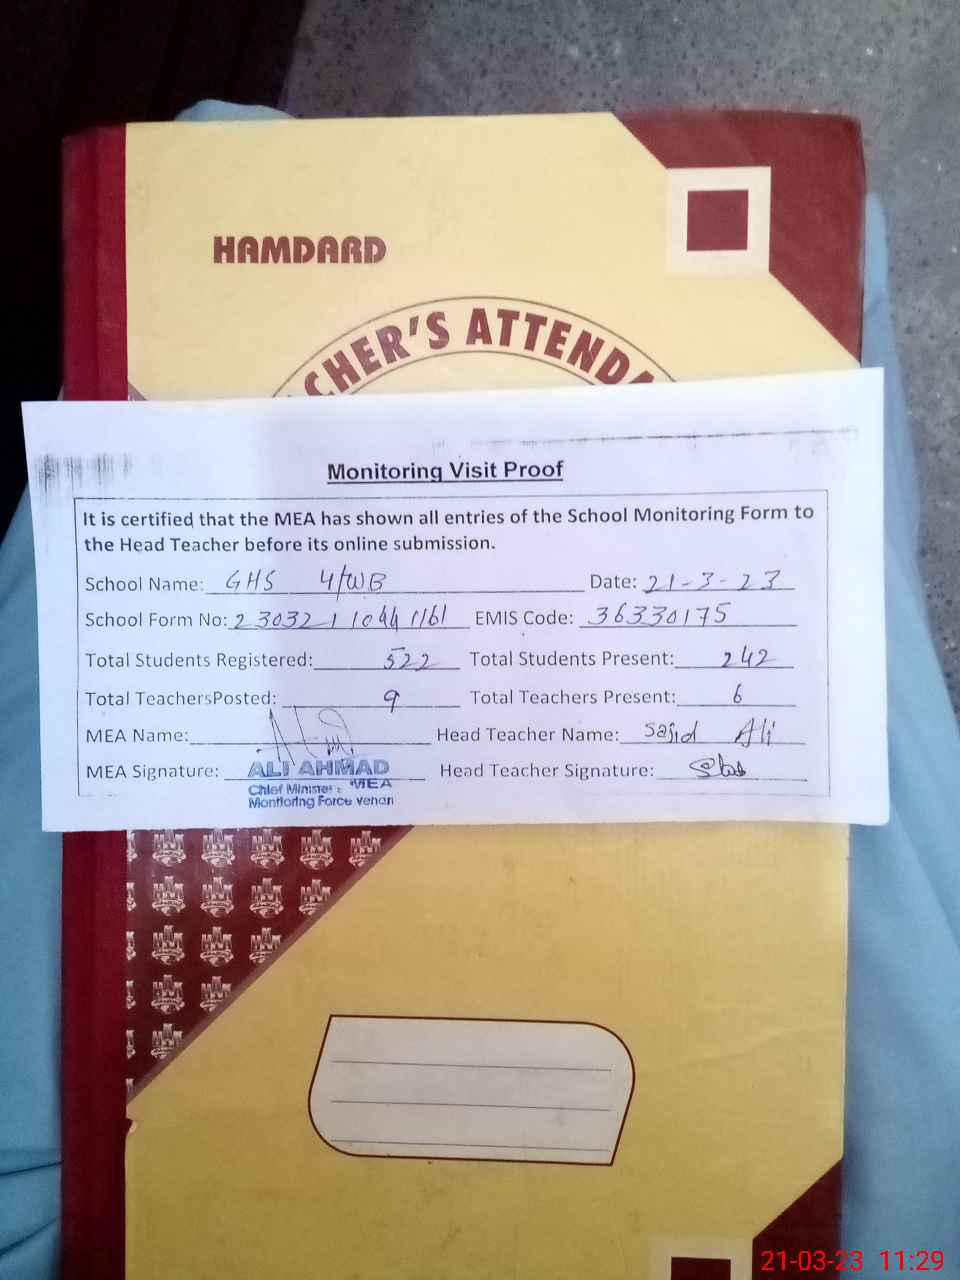 HAMDARD
CHER'S ATTENDA
Monitoring Visit Proof
It is certified that the MEA has shown all entries of the School Monitoring Form to
the Head Teacher before its online submission.
School Name: GHS 4/WB Date: 21-3-23
School Form No: EMIS Code: 36330175
Total Students Registered: 522 Total Students Present: 242
Total TeachersPosted: 9 Total Teachers Present: 6
MEA Name: Head Teacher Name: Sajid Ali
MEA Signature: ALI AHMAD Head Teacher Signature:
Chief Minister's MEA
Monitoring Force vehari
21-03-23 11:29